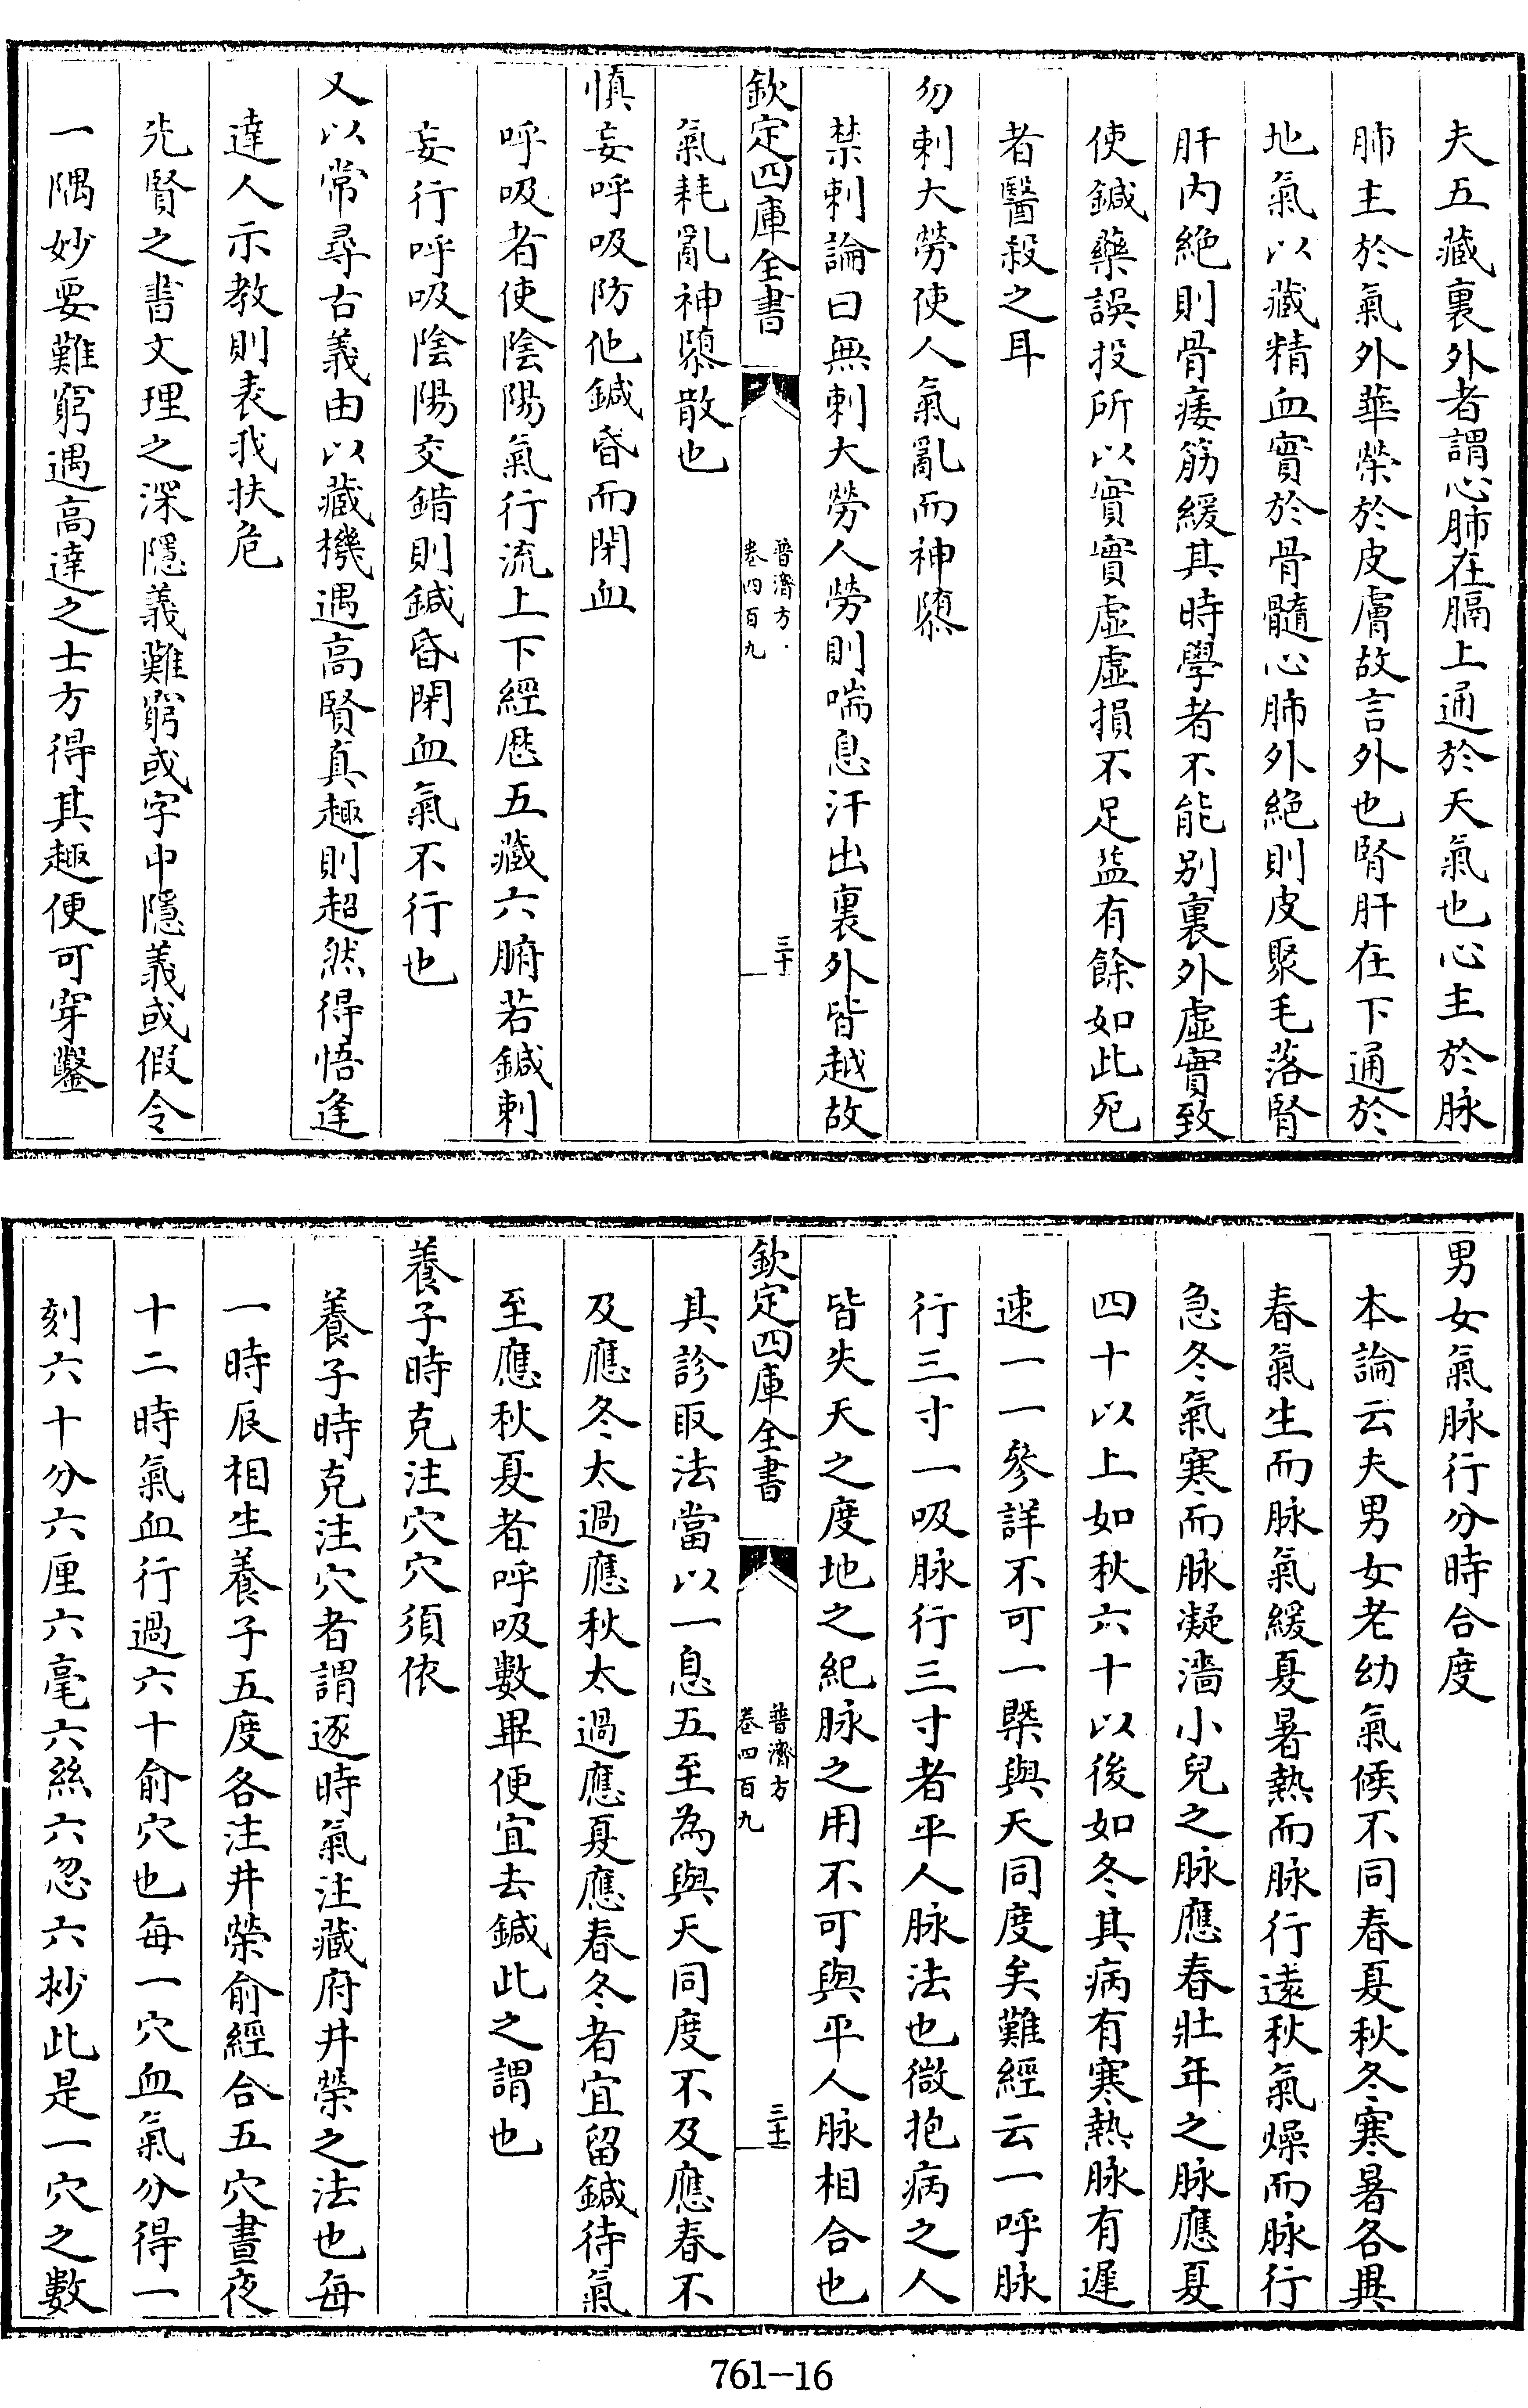 夫五藏裏外者謂心肺在膈上通於天氣也心主於脉
肺主於氣外華榮於皮膚故言外也腎肝在下通於
地氣以藏精血實於骨髓心肺外絶則皮聚毛落腎
肝内絶則骨痿筋緩其時學者不能别裏外虚實致
使鍼藥誤投所以實實虚虚損不足益有餘如此死
者醫殺之耳
勿刺大勞使人氣亂而神隳
禁刺論曰無刺大勞人勞則喘息汗出裏外皆越故
欽定四庫全書
普濟方
卷四百九
三十
氣耗亂神隳散也
慎妄呼吸防他鍼昏而閉血
呼吸者使陰陽氣行流上下經歴五藏六腑若鍼刺
妄行呼吸陰陽交錯則鍼昏閉血氣不行也
又以常尋古義由以藏機遇高賢真趣則超然得悟逢
達人示教則表我扶危
先賢之書文理之深隱義難窮或字中隱義或假令
一隅妙要難窮遇高達之士方得其趣便可穿鑿
男女氣脉行分時合度
本論云夫男女老幼氣候不同春夏秋冬寒暑各異
春氣生而脉氣緩夏暑熱而脉行遠秋氣燥而脉行
急冬氣寒而脉凝濇小兒之脉應春壯年之脉應夏
四十以上如秋六十以後如冬其病有寒熱脉有遲
速一一參詳不可一槩與天同度矣難經云一呼脉
行三寸一吸脉行三寸者平人脉法也微抱病之人
皆失天之度地之紀脉之用不可與平人脉相合也
欽定四庫全書
普濟方
卷四百九
三十一
其診取法當以一息五至為與天同度不及應春不
及應冬太過應秋太過應夏應春冬者宜留鍼待氣
至應秋夏者呼吸數畢便宜去鍼此之謂也
養子時克注穴穴須依
養子時克注穴者謂逐時氣注藏府井榮之法也每
一時辰相生養子五度各注井榮俞經合五穴晝夜
十二時氣血行過六十俞穴也每一穴血氣分得一
刻六十分六厘六毫六絲六忽六杪此是一穴之數
761-16